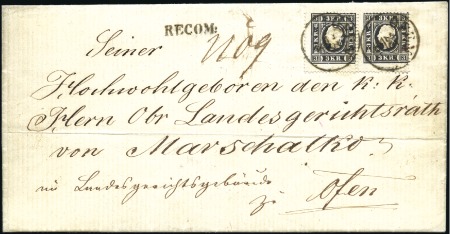 RECOM:
3 KR
3 KR
Seiner
Hochwohlgeboren den k: k:
Herrn Obr Landesgerichtsrath
von Marschalko
im Landesgerichtsgebäude
zu Ofen